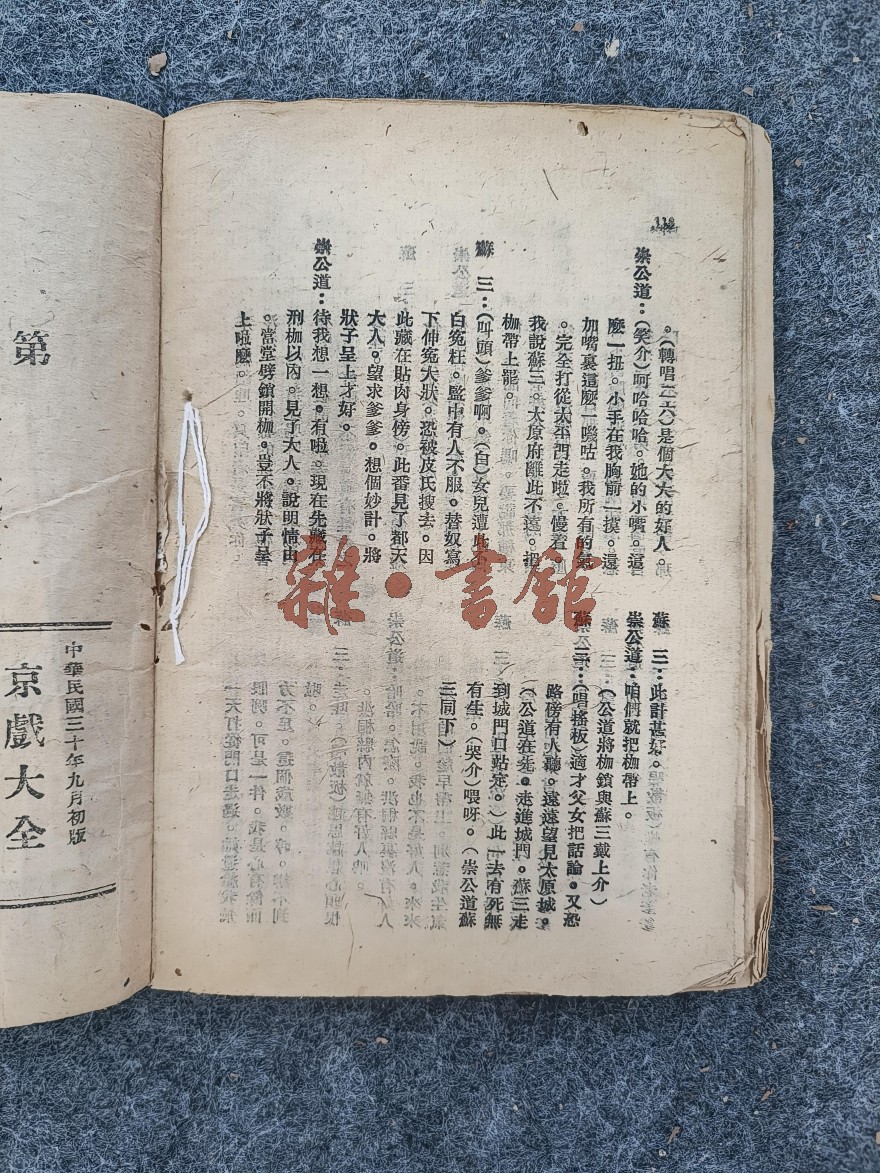 118
。(轉唱二六)是個大大的好人。
崇公道：(笑介)呵哈哈哈。她的小嘴。這
麼一扭。小手在我胸前一摸。還
加嘴裏這麼一嘰咕。我所有的氣
。完全打從太平門走啦。慢着
我說蘇三。太原府離此不遠。把
枷帶上罷。
蘇　三：(叫頭)爹爹啊。(白)女兒遭此不
白寃枉。監中有人不服。替奴寫
下伸寃大狀。恐被皮氏搜去。因
此藏在貼肉身傍。此番見了都天
大人。望求爹爹。想個妙計。將
狀子呈上才好。
崇公道：待我想一想。有啦。現在先藏在
刑枷以內。見了大人。說明情由
。當堂劈鎖開枷。豈不將狀子呈
上啦麼。
蘇　三：此計甚好。
崇公道：咱們就把枷帶上。
(公道將枷鎖與蘇三戴上介)
蘇　三：(唱搖板)適才父女把話論。又恐
路傍有人聽。遠遠望見太原城。
(公道在先。走進城門。蘇三走
到城門口站定。)此一去有死無
有生。(哭介)喂呀。(崇公道蘇
三同下)
雜·書館
第
中華民國三十年九月初版
京戲大全